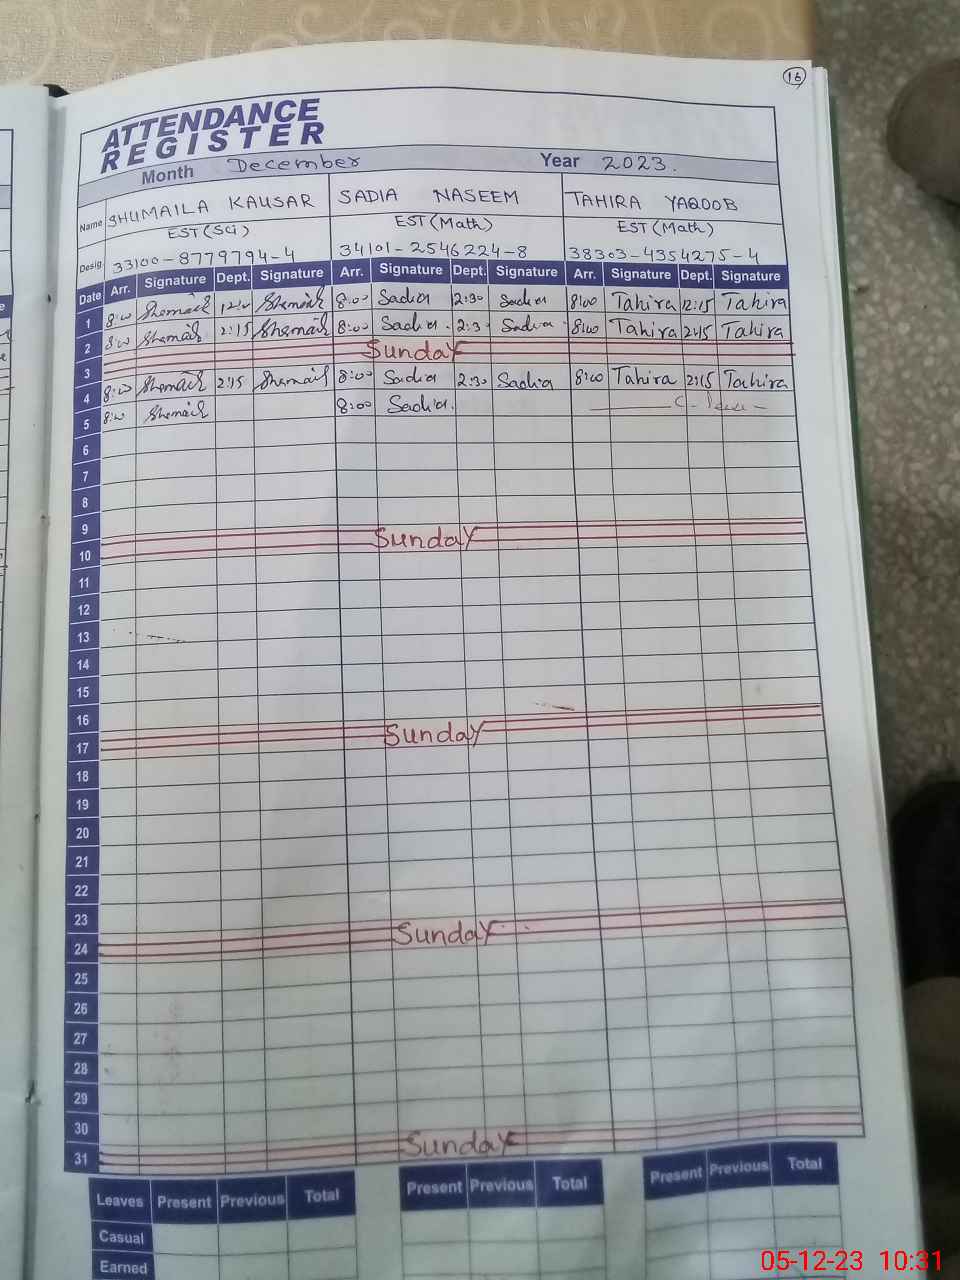 16
ATTENDANCE
REGISTER
Month December Year 2023.
Name SHUMAILA KAUSAR SADIA NASEEM TAHIRA YAQOOB
EST(Sci) EST(Math) EST(Math)
Desig. 33100-8779794-4 34101-2546224-8 38303-4354275-4
Date Arr. Signature Dept. Signature Arr. Signature Dept. Signature Arr. Signature Dept. Signature
1 8:00 Shemail Shemail 8:00 Sadia 12:30 Sadia 8:00 Tahira 12:15 Tahira
2 8:00 Shemail 2:15 Shemail 8:00 Sadia 2:3 Sadia 8:00 Tahira 2:15 Tahira
3 Sunday
4 8:00 Shemail 2:15 Shemail 8:00 Sadia 2:30 Sadia 8:00 Tahira 2:15 Tahira
5 8:00 Shemail 8:00 Sadia.
6
7
8
9
10 Sunday
11
12
13
14
15
16
17 Sunday
18
19
20
21
22
23
24 Sunday
25
26
27
28
29
30
31 Sunday
Leaves Present Previous Total Present Previous Total Present Previous Total
Casual
Earned
05-12-23 10:31